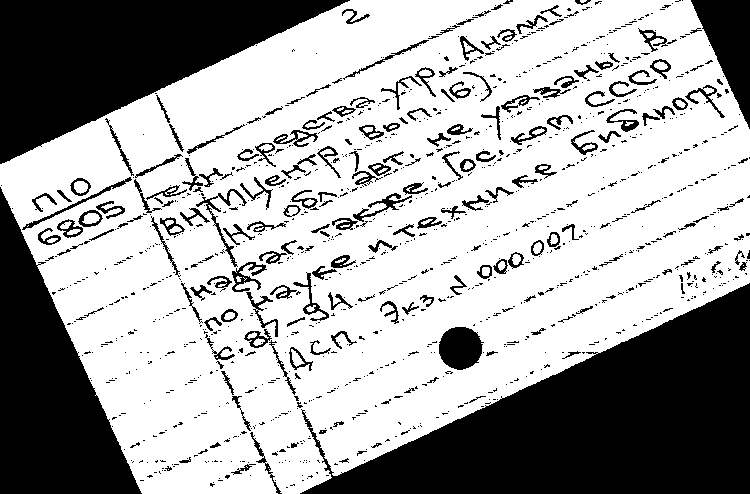 2
техн. средства упр.: Аналит.
ВНТИЦентр; Вып. 16).
На обл. авт. не указаны. В
надзаг. также: Гос. ком. СССР
по науке и технике Библиогр.:
с. 87-94
ДСП. Экз. N 000007.
П10
6805